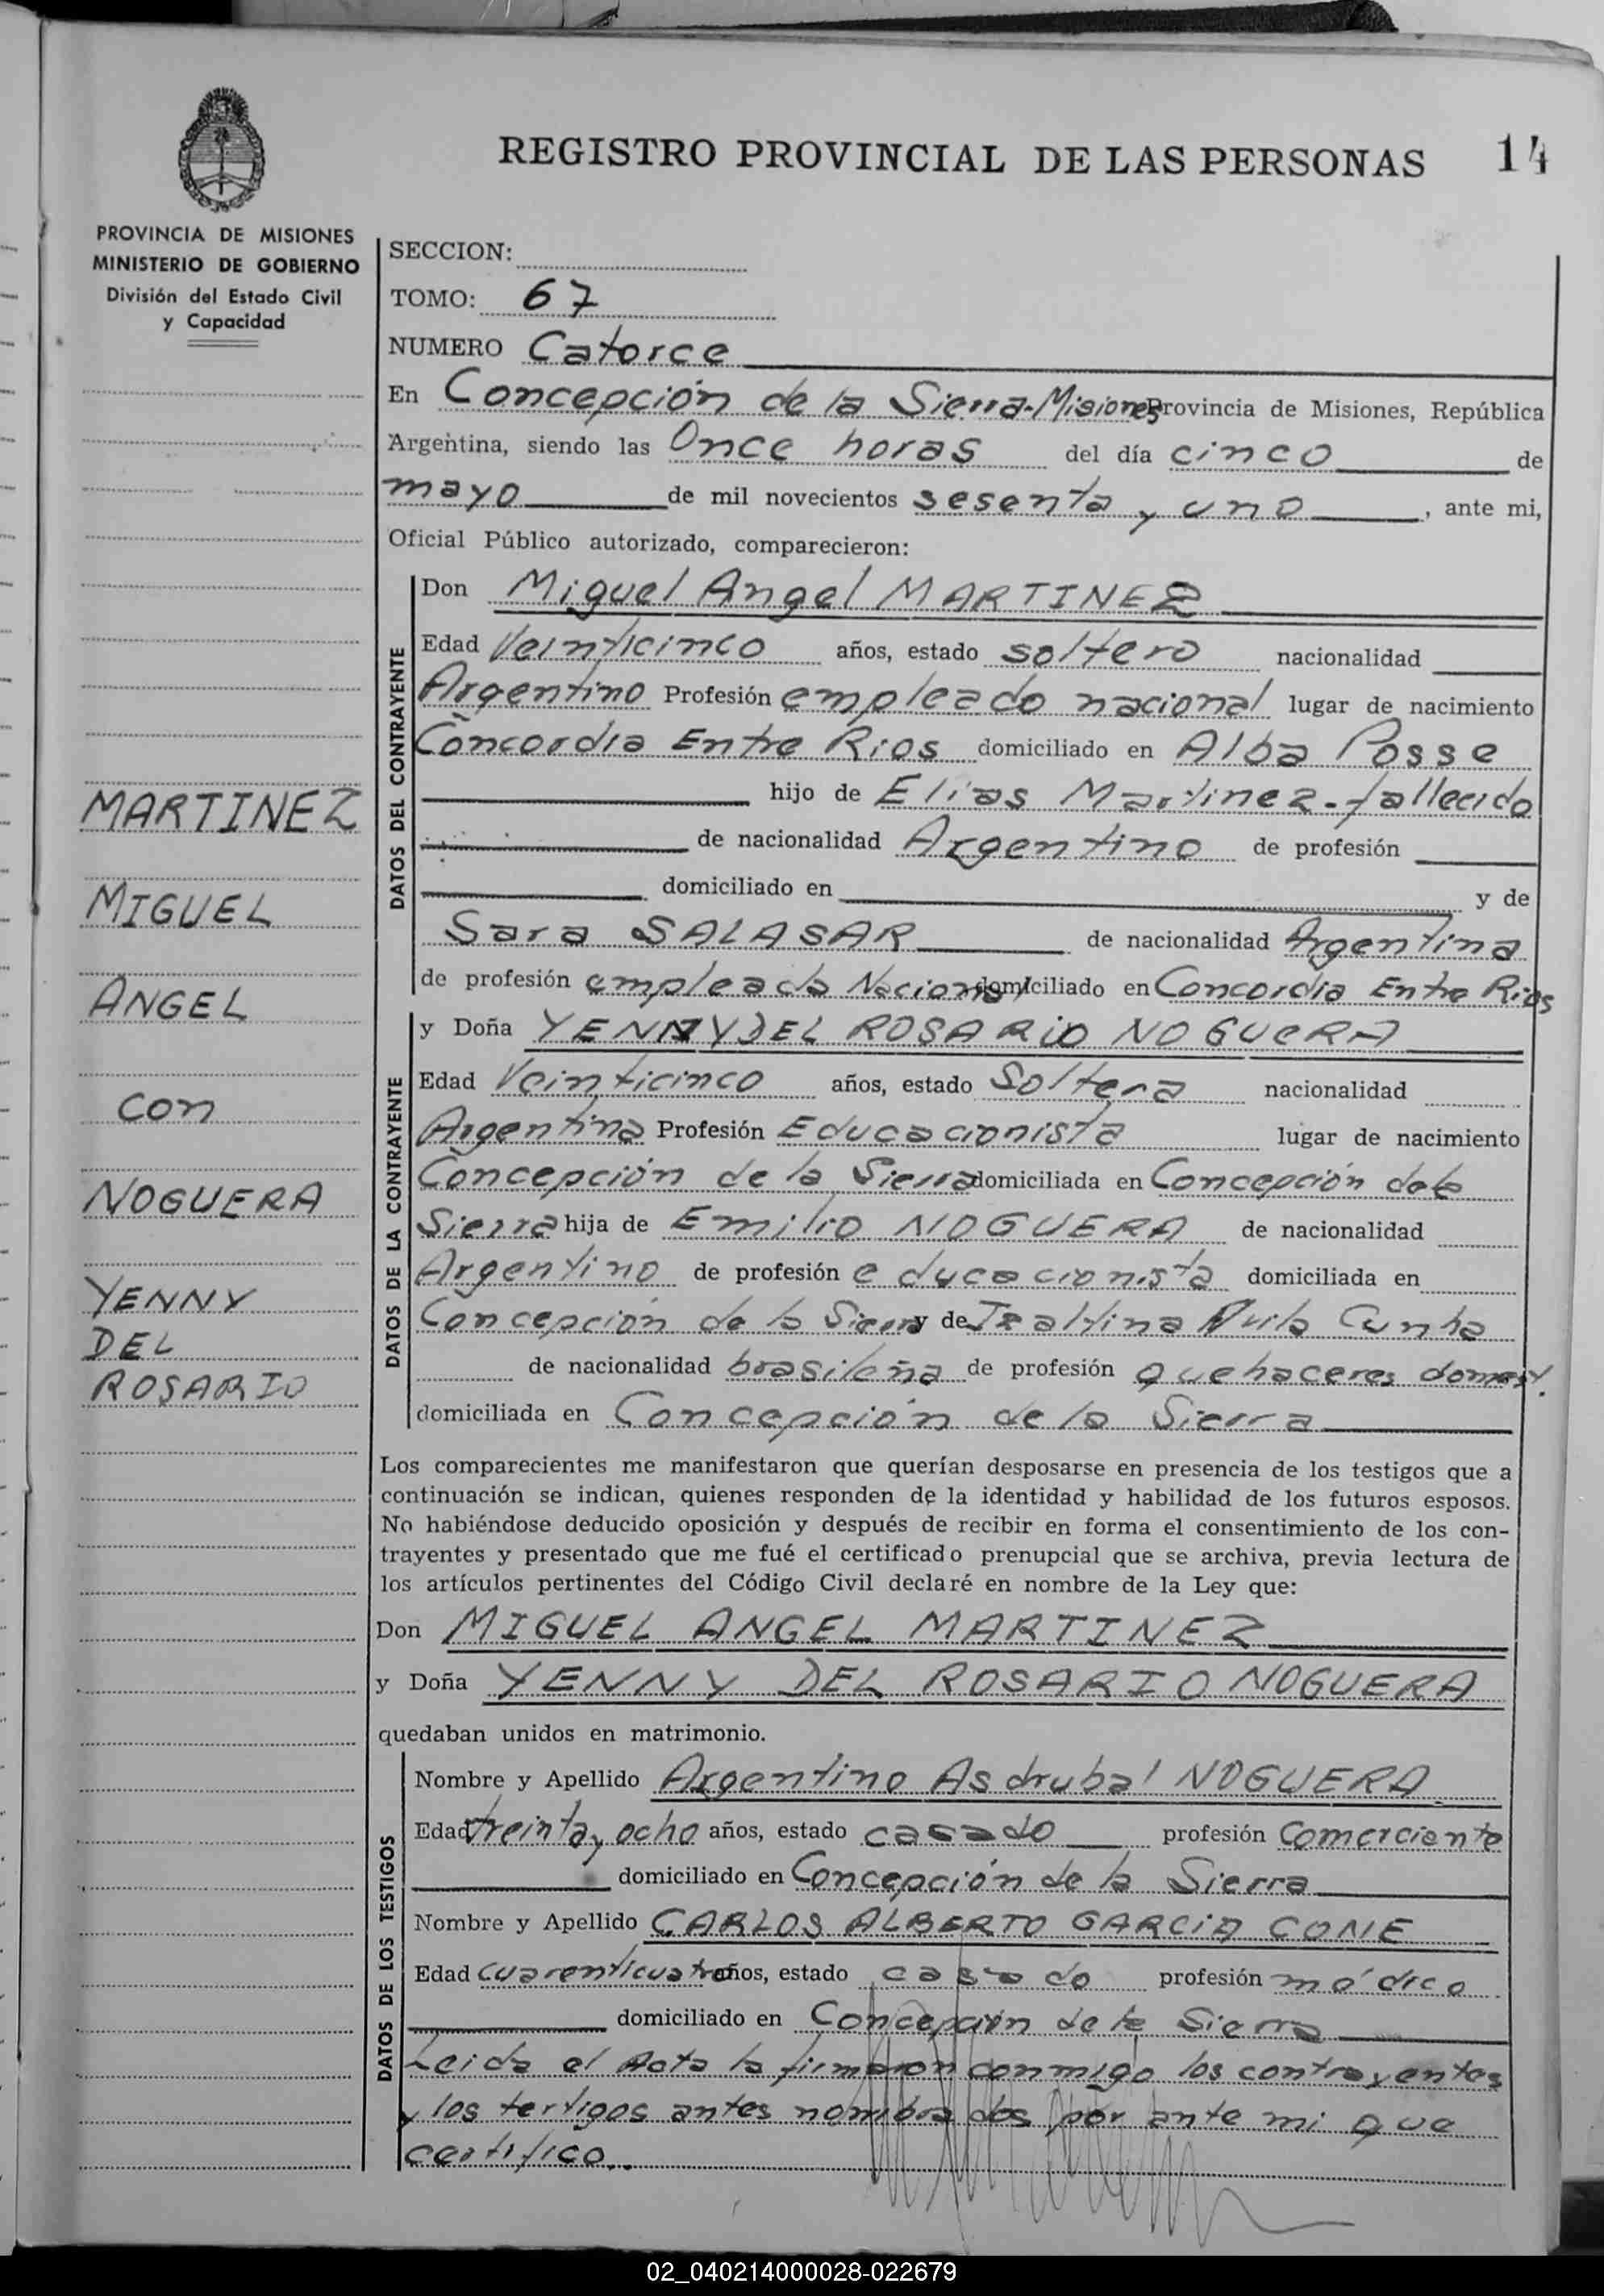 REGISTRO PROVINCIAL DE LAS PERSONAS 14
PROVINCIA DE MISIONES
MINISTERIO DE GOBIERNO
División del Estado Civil
y Capacidad
MARTINEZ
MIGUEL
ANGEL
con
NOGUERA
YENNY
DEL
ROSARIO
SECCION:
TOMO: 67
NUMERO Catorce
En Concepción de la Sierra-Misiones Provincia de Misiones, República
Argentina, siendo las Once horas del día cinco de
mayo de mil novecientos sesenta y uno, ante mi,
Oficial Público autorizado, comparecieron:
DATOS DEL CONTRAYENTE
Don Miguel Angel MARTINEZ
Edad Veinticinco años, estado soltero nacionalidad
Argentino Profesión empleado nacional lugar de nacimiento
Concordia Entre Rios domiciliado en Alba Posse
hijo de Elias Martinez-fallecido
de nacionalidad Argentino de profesión
domiciliado en y de
Sara SALASAR de nacionalidad Argentina
de profesión empleada Nacional domiciliado en Concordia Entre Rios
DATOS DE LA CONTRAYENTE
y Doña YENNY DEL ROSARIO NOGUERA
Edad Veinticinco años, estado Soltera nacionalidad
Argentina Profesión Educacionista lugar de nacimiento
Concepción de la Sierra domiciliada en Concepción de la
Sierra hija de Emilio NOGUERA de nacionalidad
Argentino de profesión educacionista domiciliada en
Concepción de la Sierra y de Cunha
de nacionalidad brasileña de profesión quehaceres domest.
domiciliada en Concepción de la Sierra
Los comparecientes me manifestaron que querían desposarse en presencia de los testigos que a
continuación se indican, quienes responden de la identidad y habilidad de los futuros esposos.
No habiéndose deducido oposición y después de recibir en forma el consentimiento de los con-
trayentes y presentado que me fué el certificado prenupcial que se archiva, previa lectura de
los artículos pertinentes del Código Civil declaré en nombre de la Ley que:
Don MIGUEL ANGEL MARTINEZ
y Doña YENNY DEL ROSARIO NOGUERA
quedaban unidos en matrimonio.
DATOS DE LOS TESTIGOS
Nombre y Apellido Argentino Asdrubal NOGUERA
Edad treinta y ocho años, estado casado profesión Comerciante
domiciliado en Concepción de la Sierra
Nombre y Apellido CARLOS ALBERTO GARCIA CONE
Edad cuarenticuatro años, estado casado profesión médico
domiciliado en Concepción de la Sierra
Leida el Acta la firmaron conmigo los contrayentes
y los tertigos antes nombrados por ante mi que
certifico..
02_040214000028-022679